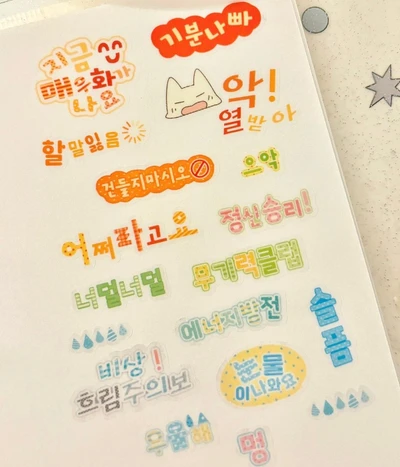 지금
매우화가
나요
기분나빠
악!
열받아
할말잃음
오악
건들지마시오
정신승리!
어쩌라고요
너덜너덜
무기력클럽
에너지방전
슬픔
비상!
흐림주의보
눈물
이나와요
우울해
멍